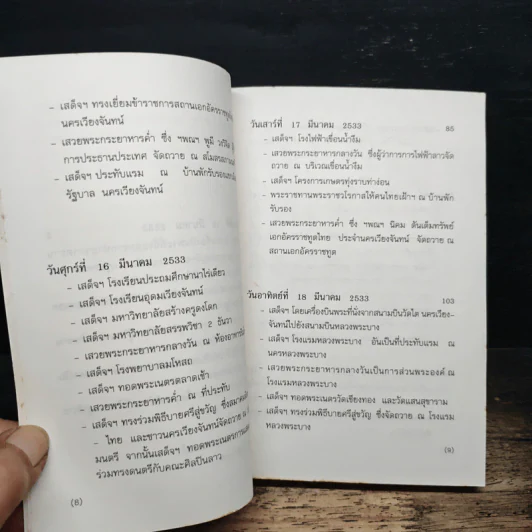 - เสด็จฯ ทรงเยี่ยมข้าราชการสถานเอกอัครราชทูต
นครเวียงจันทน์
- เสวยพระกระยาหารค่ำ ซึ่ง ฯพณฯ พูมี
การประธานประเทศ จัดถวาย ณ สโมสร
- เสด็จฯ ประทับแรม ณ บ้านพักรับรอง
รัฐบาล นครเวียงจันทน์
วันศุกร์ที่ 16 มีนาคม 2533
- เสด็จฯ โรงเรียนประถมศึกษานาไร่เดียว
- เสด็จฯ โรงเรียนอุดมเวียงจันทน์
- เสด็จฯ มหาวิทยาลัยสร้างครูดงโดก
- เสด็จฯ มหาวิทยาลัยสรรพวิชา 2 ธันวา
- เสวยพระกระยาหารกลางวัน ณ ห้องอาหาร
- เสด็จฯ โรงพยาบาลมโหสถ
- เสด็จฯ ทอดพระเนตรตลาดเช้า
- เสวยพระกระยาหารค่ำ ณ ที่ประทับ
- เสด็จฯ ทรงร่วมพิธีบายศรีสู่ขวัญ ซึ่งสมาคม
- ไทย และชาวนครเวียงจันทน์จัดถวาย ณ
มนตรี จากนั้นเสด็จฯ ทอดพระเนตรการ
ร่วมทรงดนตรีกับคณะศิลปินลาว
(8)
วันเสาร์ที่ 17 มีนาคม 2533 85
- เสด็จฯ โรงไฟฟ้าเขื่อนน้ำงึม
- เสวยพระกระยาหารกลางวัน ซึ่งผู้ว่าการการไฟฟ้าลาวจัด
ถวาย ณ บริเวณเขื่อนน้ำงึม
- เสด็จฯ โครงการเกษตรทุ่งราบท่าง่อน
- พระราชทานพระราชวโรกาสให้คนไทยเฝ้าฯ ณ บ้านพัก
รับรอง
- เสวยพระกระยาหารค่ำ ซึ่ง ฯพณฯ นิคม ตันเต็มทรัพย์
เอกอัครราชทูตไทย ประจำนครเวียงจันทน์ จัดถวาย ณ
สถานเอกอัครราชทูต
วันอาทิตย์ที่ 18 มีนาคม 2533 103
- เสด็จฯ โดยเครื่องบินพระที่นั่งจากสนามบินวัดไต นครเวียง-
จันทน์ไปยังสนามบินหลวงพระบาง
- เสด็จฯ โรงแรมหลวงพระบาง อันเป็นที่ประทับแรม ณ
นครหลวงพระบาง
- เสวยพระกระยาหารกลางวันเป็นการส่วนพระองค์ ณ
โรงแรมหลวงพระบาง
- เสด็จฯ ทอดพระเนตรวัดเชียงทอง และวัดแสนสุขาราม
- เสด็จฯ ทรงร่วมพิธีบายศรีสู่ขวัญ ซึ่งจัดถวาย ณ โรงแรม
หลวงพระบาง
(9)